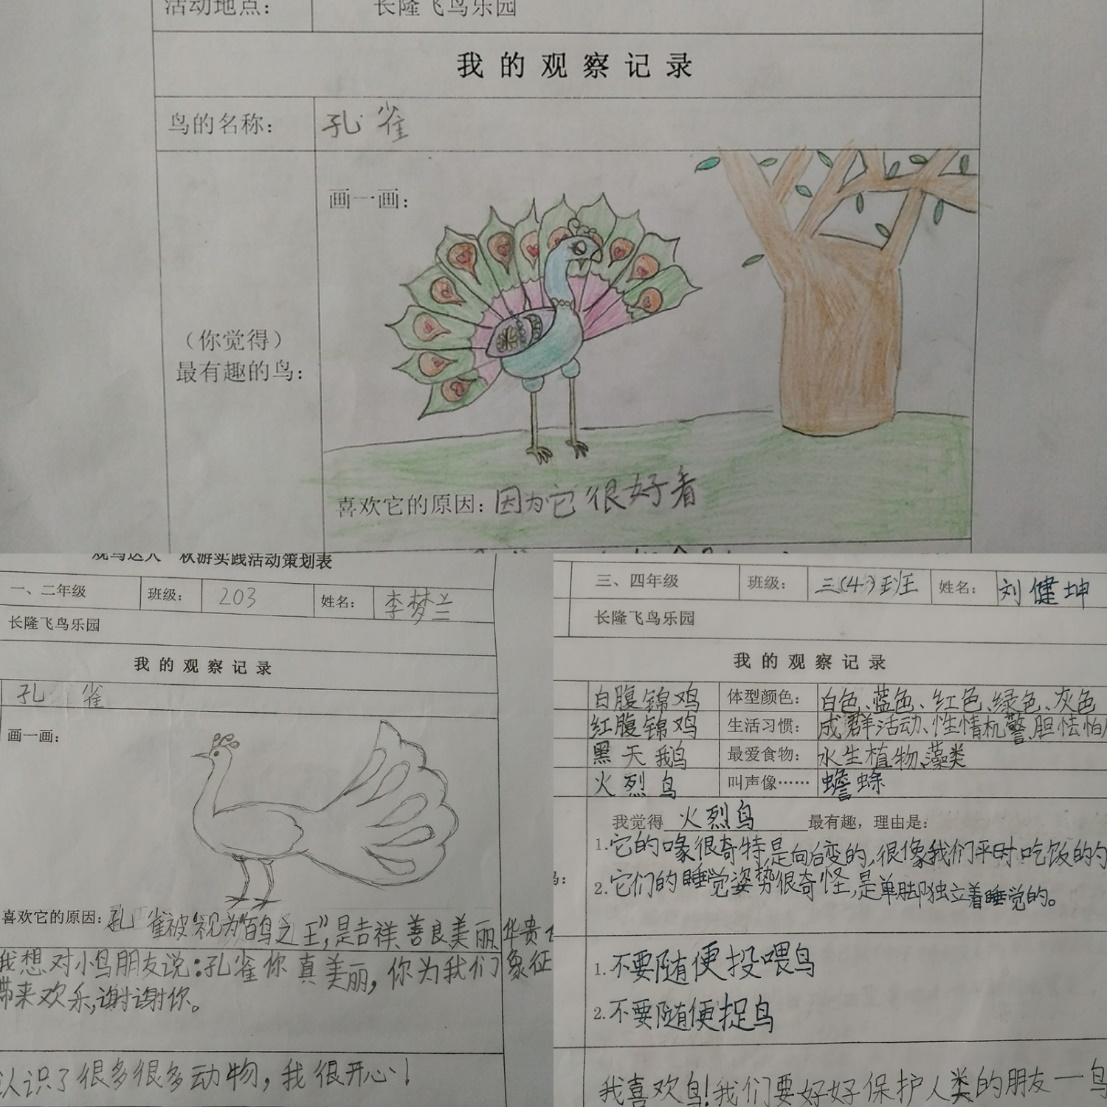 活动地点： 长隆飞鸟乐园
我的观察记录
鸟的名称： 孔雀
画一画：
（你觉得）
最有趣的鸟：
喜欢它的原因：因为它很好看
观鸟达人 秋游实践活动策划表
一、二年级 班级： 203 姓名： 李梦兰
长隆飞鸟乐园
我的观察记录
孔雀
画一画：
喜欢它的原因：孔雀被视为“百鸟之王”，是吉祥、善良、美丽、华贵
象征
我想对小鸟朋友说：孔雀你真美丽，你为我们
带来欢乐，谢谢你。
认识了很多很多动物，我很开心！
三、四年级 班级： 三（4）班 姓名： 刘健坤
长隆飞鸟乐园
我的观察记录
白腹锦鸡 体型颜色： 白色、蓝色、红色、绿色、灰色
红腹锦鸡 生活习惯： 成群活动、性情机警、胆怯怕
黑天鹅 最爱食物： 水生植物、藻类
火烈鸟 叫声像…… 蟾蜍
我觉得 火烈鸟 最有趣，理由是：
1.它的喙很奇特是向后弯的，很像我们平时吃饭的勺
2.它们的睡觉姿势很奇怪，是单脚独立着睡觉的。
1.不要随便投喂鸟
2.不要随便捉鸟
我喜欢鸟！我们要好好保护人类的朋友一鸟